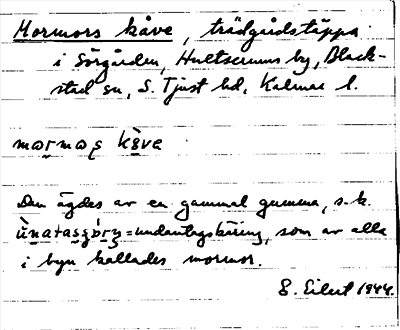 Mormors kåve, trädgårdstäppa
i Sörgården, Hultserums by, Black-
stad sn, S. Tjust hd, Kalmar l.
mormos kève
Den ägdes av en gammal gumma, s.k.
undantagskäring, som av alla
i byn kallades mormor.
S. Eilert 1944.